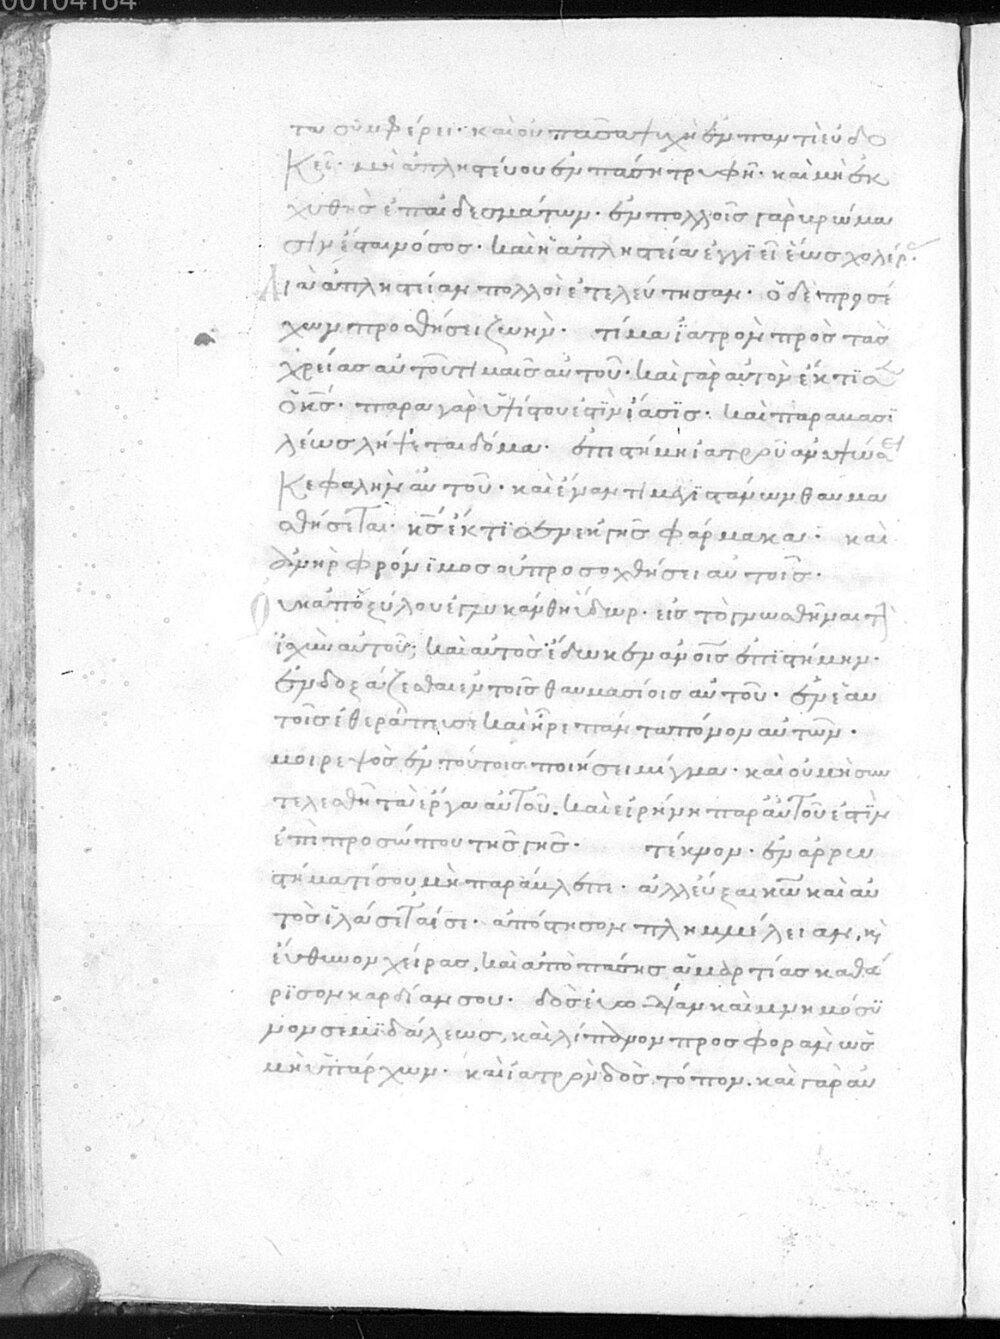 00104164
τα συμφέρει· καὶ οὐ πᾶσα ψυχὴ ἐν παντὶ εὐδο
κεῖ· μὴ ἀπληστεύου ἐν πάσῃ τρυφῇ· καὶ μὴ ἐκ
χυθῇς ἐπαιδεσμάτων· ἐν πολλοῖς γὰρ βρώμα
σιν ἔσται νόσος· καὶ ἡ ἀπληστεία ἐγγιεῖ ἕως χολέρ
Δι ἀπληστείαν πολλοὶ ἐτελεύτησαν· ὁ δὲ προσέ
χων προσθήσει ζωήν· τίμα ἰατρὸν πρὸς τὰς
χρείας αὐτοῦ τιμαῖς αὐτοῦ· καὶ γὰρ αὐτὸν ἔκτισε
ὁ κς· παρα γὰρ ὑψίστου ἐστὶν ἴασις· καὶ παρα βασι
λέως λήψεται δόμα· ἐπιστήμη ἰατροῦ ἀνυψώσει
κεφαλὴν αὐτοῦ· καὶ ἔναντι μεγιστάνων θαυμα
σθήσεται· κς ἔκτισεν ἐκ γῆς φάρμακα· καὶ
ἀνὴρ φρόνιμος οὐ προσοχθήσει αὐτοῖς·
Οὐκ ἀπὸ ξύλου ἐγλυκάνθη ὕδωρ· εἰς τὸ γνωσθῆναι τὴν
ἰσχὺν αὐτοῦ; καὶ αὐτὸς ἔδωκεν ἀνοις ἐπιστήμην·
ἐνδοξάζεσθαι ἐν τοῖς θαυμασίοις αὐτοῦ· ἐν ἐαυ
τοῖς ἐθεράπευσε καὶ ἦρε πάντα πόνον αὐτῶν·
μοιρεψὸς ἐν τούτοις ποιήσει μίγμα· καὶ οὐ μὴ συν
τελεσθῇ τὰ ἔργα αὐτοῦ. καὶ εἰρήνη παρ αὐτοῦ ἐστὶν
ἐπὶ προσώπου τῆς γῆς· τέκνον· ἐν ἀρρω
στήματί σου μὴ παράβλεπε· ἀλλ εὖξαι κω καὶ αὐ
τὸς ἰλάσεταί σε· ἀπόστησον πλημμέλειαν, κ
εύθυνον χείρας, καὶ ἀπὸ πάσης ἁμαρτίας καθά
ρισον καρδίαν σου· δὸς εὐωδίαν καὶ μνημόσυ
νον σεμιδάλεως, καὶ λίπανον προσφορὰν ὡς
μὴ ὑπάρχων· καὶ ἰατρῷ δὸς τόπον. καὶ γὰρ αὐ